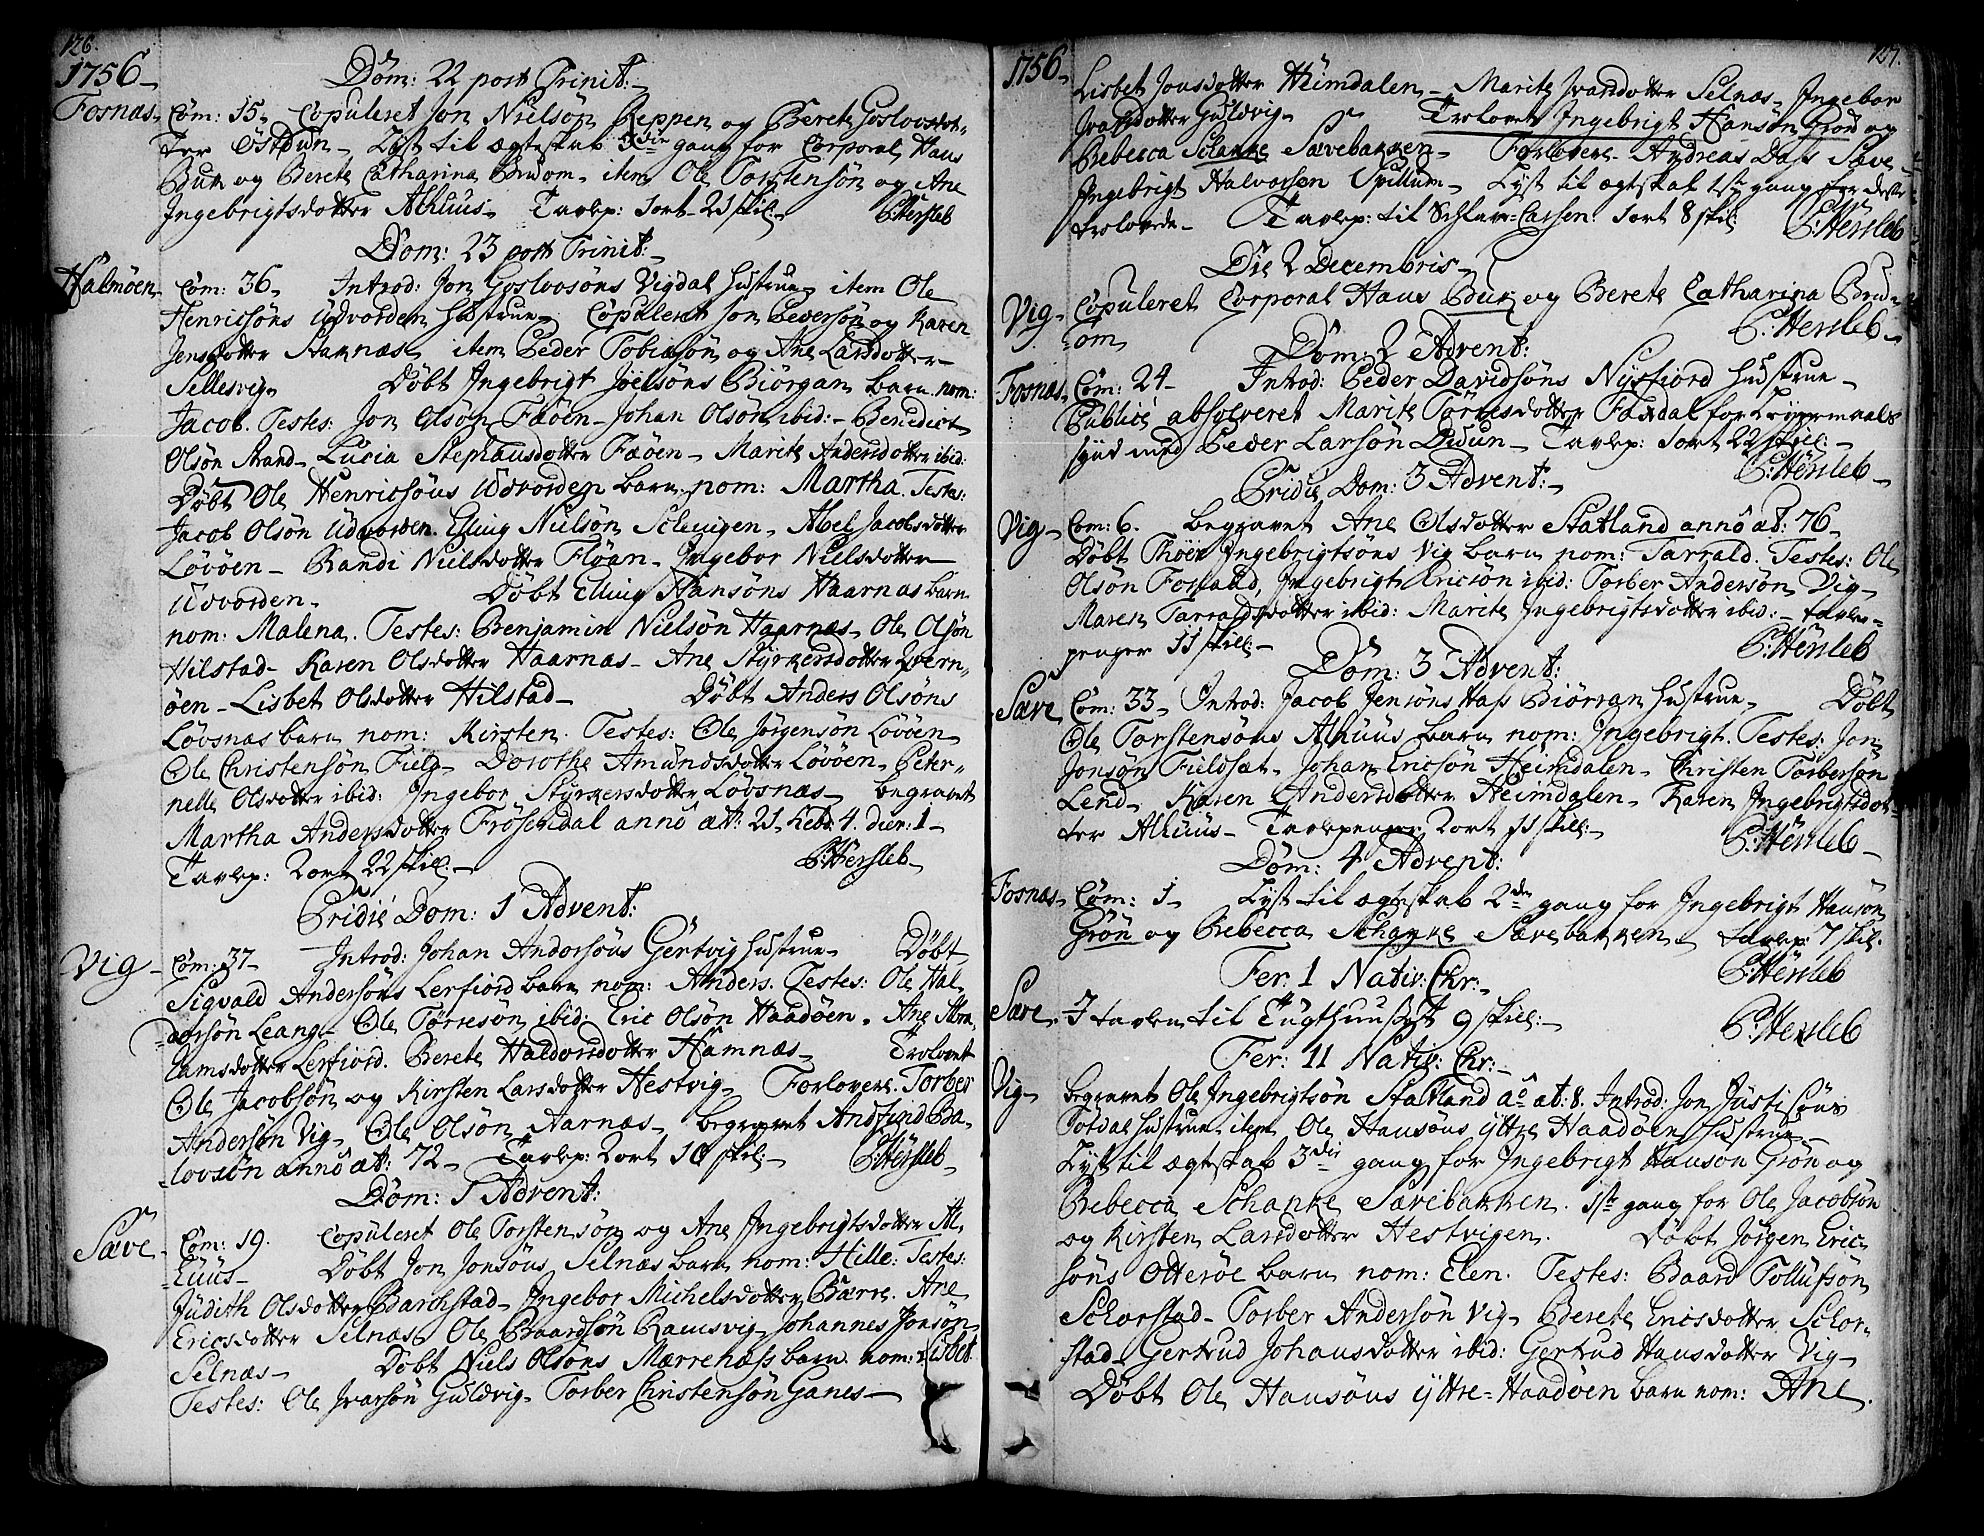 126.
1756.
Dom: 22 post Trinit:
Fosnæs. Com: 15. Copuleret Jon Nielsøn Reppen og Berete Goslovsdot-
ter Østbun. Lyst til ægteskab 3die gang for Corporal Hans
Buk og Berete Catharina Brudom. item Ole Torstensøn og Ane
Ingebrigtsdotter Alhuus. Tavlep: 1 ort 21 skil. P: Hersleb
Dom: 23 post Trinit:
Halmøen. Com: 36. Introd: Jon Goslovsøns Vigdal hustrue item Ole
Henricsøns Udvorden hustrue. Copuleret Jon Pedersøn og Karen
Jensdotter Stamnæs. item Peder Tobiasøn og Ane Larsdotter
Sellesvig. Døbt Ingebrigt Joelsøns Biørgan barn nom:
Jacob. Testes: Jon Olsøn Fæøen. Johan Olsøn ibid: Benedict
Olsøn Strand. Lucia Stephansdotter Fæøen. Marite Andersdotter ibid:
Døbt Ole Henricsøns Udvorden barn nom: Martha. Testes:
Jacob Olsøn Udvorden. Elling Nielsøn Selnigen. Abel Jacobsdotter
Løvøen. Randi Nielsdotter Fløan. Ingebor Nielsdotter
Udvorden. Døbt Elling Hansøns Haarnæs barn
nom: Malena. Testes: Benjamin Nielsøn Haarnæs. Ole Olsøn
Hilstad. Karen Olsdotter Haarnæs. Ane Styrkersdotter Qvern-
øen. Lisbet Olsdotter Hilstad. Døbt Anders Olsøns
Løvsnæs barn nom: Kirsten. Testes: Ole Jørgensøn Løvøen.
Ole Christensøn Fielg. Dorothe Amundsdotter Løvøen. Peter-
nelle Olsdotter ibid: Ingebor Styrkersdotter Løvsnæs. begravet
Martha Andersdotter Frøsendal anno æt: 21. hebd: 4. dier: 1
Tavlep: 2 ort 22 skil. P: Hersleb.
Pridie Dom: 1 Advent:
Vig. Com: 37. Introd: Johan Andersøns Gertvig hustrue. Døbt
Sigvald Andersøns Lerfiord barn nom: Anders. Testes: Ole Hal-
dorsøn Leang. Ole Tørresøn ibid: Eric Olsøn Haadøen. Ane Abra-
hamsdotter Lerfiord. Berete Haldorsdotter Hamnæs. Trolovet
Ole Jacobsøn og Kirsten Larsdotter Hestvig. Forlovere. Torber
Andersøn Vig. Ole Olsøn Aarnæs. begravet Andfind Ba-
lovsøn anno æt: 72. Tavlep: 2 ort 10 skil. P: Hersleb
Dom: 1 Advent:
Sæve. Com: 19. Copuleret Ole Torstensøn og Ane Ingebrigtsdotter Al-
huus. Døbt Jon Jonsøns Selnæs barn nom: Hille: Testes:
Judith Olsdotter Barchstad. Ingebor Michelsdotter Bærre. Ane
Ericsdotter Selnæs. Ole Baardsøn Ramsvig. Johannes Jonsøn
Selnæs. Døbt Niels Olsøns Mærrenæss barn nom: Lisbet
Testes: Ole Ivarsøn Guldvig. Torber Christensøn Ganes.
127.
1756.
Lisbet Jonsdotter Heimdalen. Marite Ivarsdotter Selnæs. Ingebor
Ivarsdotter Guldvig. Trolovet Ingebrigt Hansøn Grøn og
Rebecca Schanke Sævebakken. Forlovere. Andreas Dass Sæve.
Ingebrigt Halvorsen Spillum. Lyst til ægteskab 1ste gang for dette
trolovede. Tavlep: til Sclave-Cassen: 1 ort 8 skil: P: Hersleb
Die 2 Decembris.
Vig. Copuleret Corporal Hans Buk og Berete Catharina Brud-
om P: Hersleb.
Dom: 2 Advent:
Fosnæs. Com: 24. Introd: Peder Davidsøns Nysfiord hustrue.
Publicè absolveret Marite Tørresdotter Faxdal for Leyermaals
synd med Peder Larsøn Duun. Tavlep: 1 ort 22 skil:
P: Hersleb
Pridie Dom: 3 Advent:
Vig. Com: 6. begravet Ane Olsdotter Statland anno æt: 76.
Døbt Thoer Ingebrigtsøns Vig barn nom: Tarrald. Testes: Ole
Olsøn Fosland, Ingebrigt Ericsøn ibid: Torber Andersøn Vig.
Maren Tarraldsdotter ibid: Marite Ingebrigtsdotter ibid: tavle-
penger 11 skil: P: Hersleb
Dom: 3 Advent:
Sæve. Com: 33. Introd: Jacob Jensøns Hass Biørran hustrue. Døbt
Ole Torstensøns Alhuus barn nom: Ingebrigt. Testes: Jon
Jonsøn Fieldsæt. Johan Ericsøn Heimdalen. Christen Torbersøn
Lend. Karen Andersdotter Heimdalen. Karen Ingebrigtsdot-
ter Alhuus. Tavlepenger 2 ort 11 skill: P: Hersleb.
Dom: 4 Advent:
Fosnæs. Com: 1. Lyst til ægteskab 2den gang for Ingebrigt Hansøn
Grøn og Rebecca Schanke Sævebakken. tavlep: 7 skil.
P: Hersleb
Fer: 1 Nativ: Chr:
Sæve. I tavlen til Tugthuuset 9 skill: P: Hersleb
Fer: 11 Nativ: Chr:
Vig. begravet Ole Ingebrigtsøn Statland ao æt: 8. Introd: Jon Justisøns
Totdal hustrue. item Ole Hansøns yttre Haadøen hustrue.
Lyst til ægteskab 3die gang for Ingebrigt Hansøn Grøn og
Rebecca Schanke Sævebakken. 1ste gang for Ole Jacobsøn
og Kirsten Larsdotter Hestvigen. Døbt Jørgen Eric-
søns Otterøe barn nom: Elen. Testes: Baard Tollufsøn
Schorstad. Torber Andersøn Vig. Berete Ericsdotter Schor-
stad. Gertrud Johansdotter ibid: Gertrud Hansdotter Vig.
Døbt Ole Hansøns yttre-Haadøen barn nom: Ane.